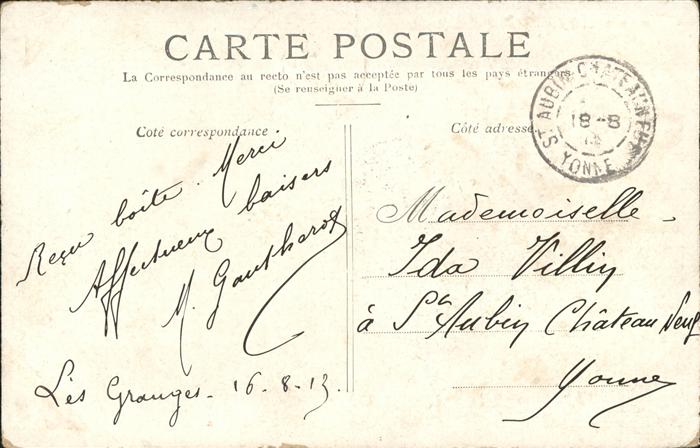 CARTE POSTALE
La Correspondance au recto n'est pas acceptée par tous les pays étrangers
(Se renseigner à la Poste)
Coté correspondance
Côté adresse
Reçu boîte. Merci
Affectueux baisers
M. Gautherot
Les Granges - 16-8-13.
Mademoiselle
Ida Villin
à St Aubin Château Neuf
Yonne
ST AUBIN-CHATEAUNEUF
18-8
YONNE